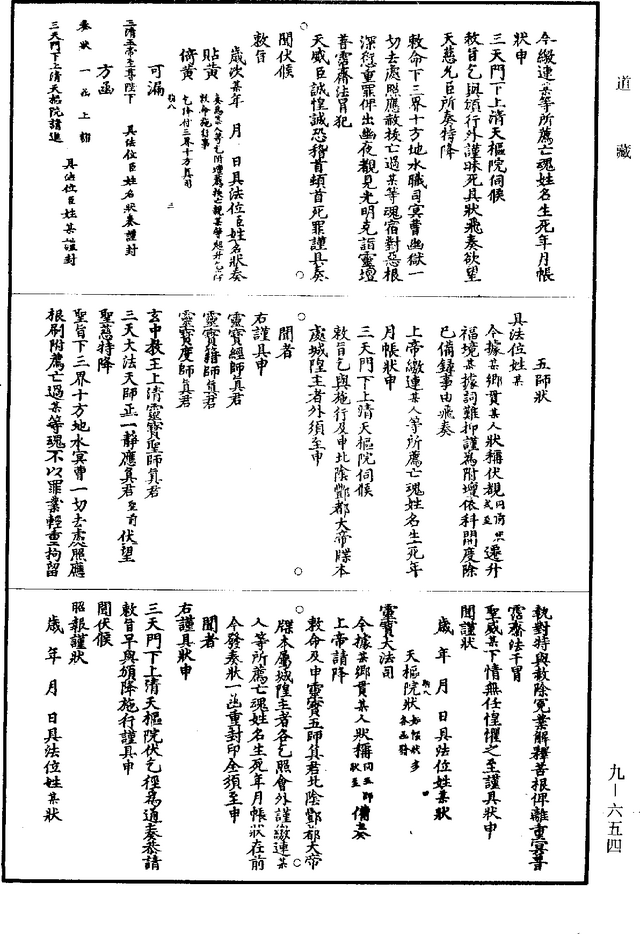 道藏
今繳連某等所薦亡魂姓名生死年月帳
狀申
三天門下上清天樞院伺候
敕旨乞與頒行外謹昧死具狀飛奏欲望
天慈允臣所奏特降
敕命下三界十方地水職司冥曹幽獄一
切去處照應赦拔亡過某等魂宿對惡根
深衍重罪俾出幽夜觀見光明克詣靈壇
普霑齋法冒犯
天威臣誠惶誠恐稽首頓首死罪謹具奏
聞伏候
敕旨
歲次某年 月 日具法位臣姓名狀奏
貼黃
倚黃 乞降付三界十方真司
可漏
三清上帝至尊陛下 具法位臣姓名狀奏謹封
方函
奏狀 一函上詣
三天門下上清天樞院請進 具法位臣姓某謹封
五師狀
具法位姓某
今據某鄉貫某人狀稱伏覩 遷升
福境某據詞難抑謹為附壇依科開度除
已備錄事由飛奏
上帝繳連某人等所薦亡魂姓名生死年
月帳狀申
三天門下上清天樞院伺候
敕旨乞與施行及申北陰酆都大帝牒本
處城隍主者外須至申
聞者
右謹具申
靈寶經師真君
靈寶籍師真君
靈寶度師真君
玄中教主上清靈寶聖師真君
三天大法天師正一靜應真君 伏望
聖慈特降
聖旨下三界十方地水冥曹一切去處照應
根刷附薦亡過某等魂不以罪業輕重拘留
執對特與赦除冤業解釋苦根俾離重冥普
霑齋法干冒
聖威某下情無任惶懼之至謹具狀申
聞謹狀
歲 年 月 日具法位姓某狀
天樞院狀
靈寶大法司
今據某鄉貫某人狀稱 備奏
上帝請降
敕命及申靈寶五師真君北陰酆都大帝
牒本屬城隍主者各乞照會外謹繳連某
人等所薦亡魂姓名生死年月帳狀在前
今發奏狀一函重封印全須至申
聞者
右謹具狀申
三天門下上清天樞院伏乞徑為通奏恭請
敕旨早與頒降施行謹具申
聞伏候
照報謹狀
歲 年 月 日具法位姓某狀
九—六五四